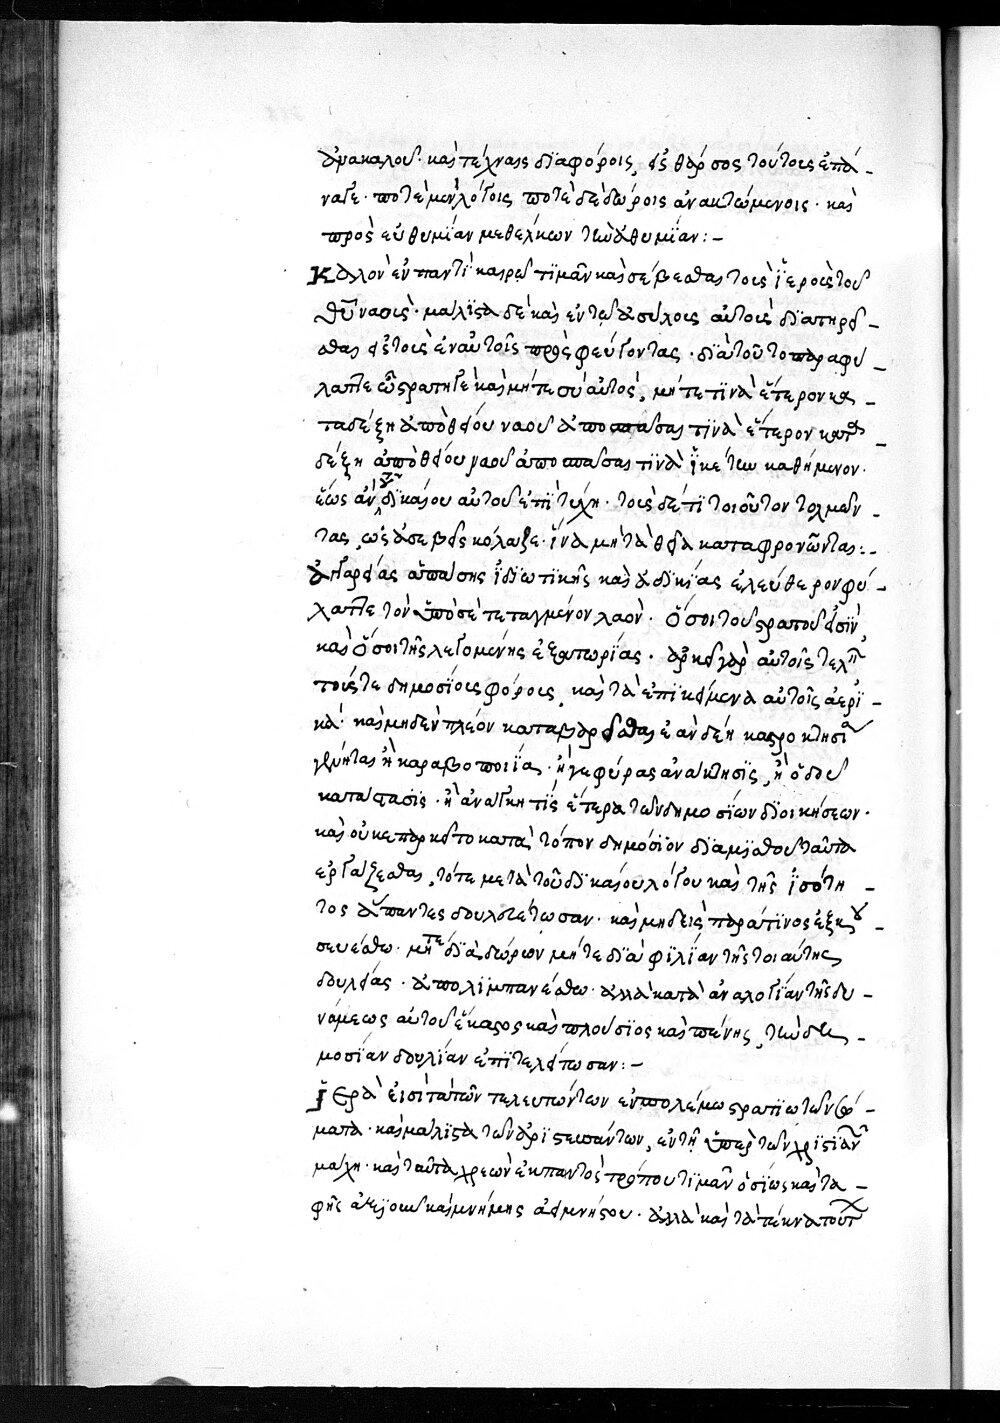 ἀνακαλοῦ· καὶ τέχναις διαφόροις, εἰς θάρσος τούτους ἐπά-
ναγε· ποτὲ μὲν λόγοις, ποτὲ δὲ δώροις ἀνακτώμενος· καὶ
πρὸς εὐθυμίαν μεθέλκων τὴν ἀθυμίαν:-
Καλὸν ἐν παντὶ καιρῷ τιμᾶν καὶ σέβεσθαι τοὺς ἱεροὺς τοῦ
θεοῦ ναούς· μάλιστα δὲ καὶ ἐν τῷ ἀσύλους αὐτοὺς διατηρεῖ-
σθαι εἰς τοὺς ἐν αὐτοῖς προσφεύγοντας· διὰ τοῦτο παραφύ
λαττε ὦ στρατηγὲ καὶ μήτε σὺ αὐτὸς, μήτε τινὰ ἕτερον κα-
ταδέξῃ ἀπὸ θείου ναοῦ ἀποσπάσαι τινὰ ἕτερον κατα-
δέξῃ ἀπὸ θείου ναοῦ ἀποσπάσαι τινὰ ἱκέτην καθήμενον·
ἕως ἂν τοῦ δικαίου αὐτοῦ ἐπιτύχῃ· τοὺς δέ τι τοιοῦτον τολμῶν-
τας, ὡς ἀσεβεῖς κόλαζε· ἵνα μὴ τὰ θεῖα καταφρονῶνται:-
Ἀγγαρείας ἁπάσης ἰδιωτικῆς καὶ ἀδικίας ἐλεύθερον φύ-
λαττε τὸν ὑπὸ σὲ τεταγμένον λαὸν· ὅσοι τοῦ στρατοῦ εἰσὶν,
καὶ ὅσοι τῆς λεγομένης ἐξκπωρίας· ἀρκεῖ γὰρ αὐτοῖς τελεῖν
τούς τε δημοσίους φόρους, καὶ τὰ ἐπικείμενα αὐτοῖς ἀερι-
κά· καὶ μηδὲν πλέον καταβαρεῖσθαι ἐὰν δέῃ καστροκτησία
γενήται ἢ καραβοποιία· ἢ γεφύρας ἀνάκτησις, ἢ ὁδοῦ
κατάστασις· ἢ ἀνάγκη τίς ἑτέρα τῶν δημοσίων διοικήσεων·
καὶ οὐκ ἐπαρκεῖ τὸ κατὰ τόπον δημόσιον διὰ μισθοῦ ταῦτα
ἐργάζεσθαι, τότε μετὰ τοῦ δικαίου λόγου καὶ τῆς ἰσότη-
τος ἅπαντες δουλευέτωσαν· καὶ μηδεὶς παρά τινος ἐξκου
σευέσθω· μήτε διὰ δώρων μήτε διὰ φιλίαν τῆς τοιαύτης
δουλείας· ἀπολιμπανέσθω· ἀλλὰ κατὰ ἀναλογίαν τῆς δυ-
νάμεως αὐτοῦ ἕκαστος καὶ πλούσιος καὶ πένης, τὴν δη-
μοσίαν δουλείαν ἐπιτελείτωσαν:-
Ἱερὰ εἰσὶ τὰ τῶν τελευτώντων ἐν πολέμῳ στρατιωτῶν σώ-
ματα· καὶ μάλιστα τῶν ἀριστευσάντων, ἐν τῇ ὑπὲρ τῶν χριστιανῶν
μάχῃ· καὶ ταῦτα χρεὼν ἐκ παντὸς τρόπου τιμᾶν ὁσίως καὶ τα-
φῆς ἀξιοῦν καὶ μνήμης ἀειμνήστου· ἀλλὰ καὶ τὰ τέκνα τούτων